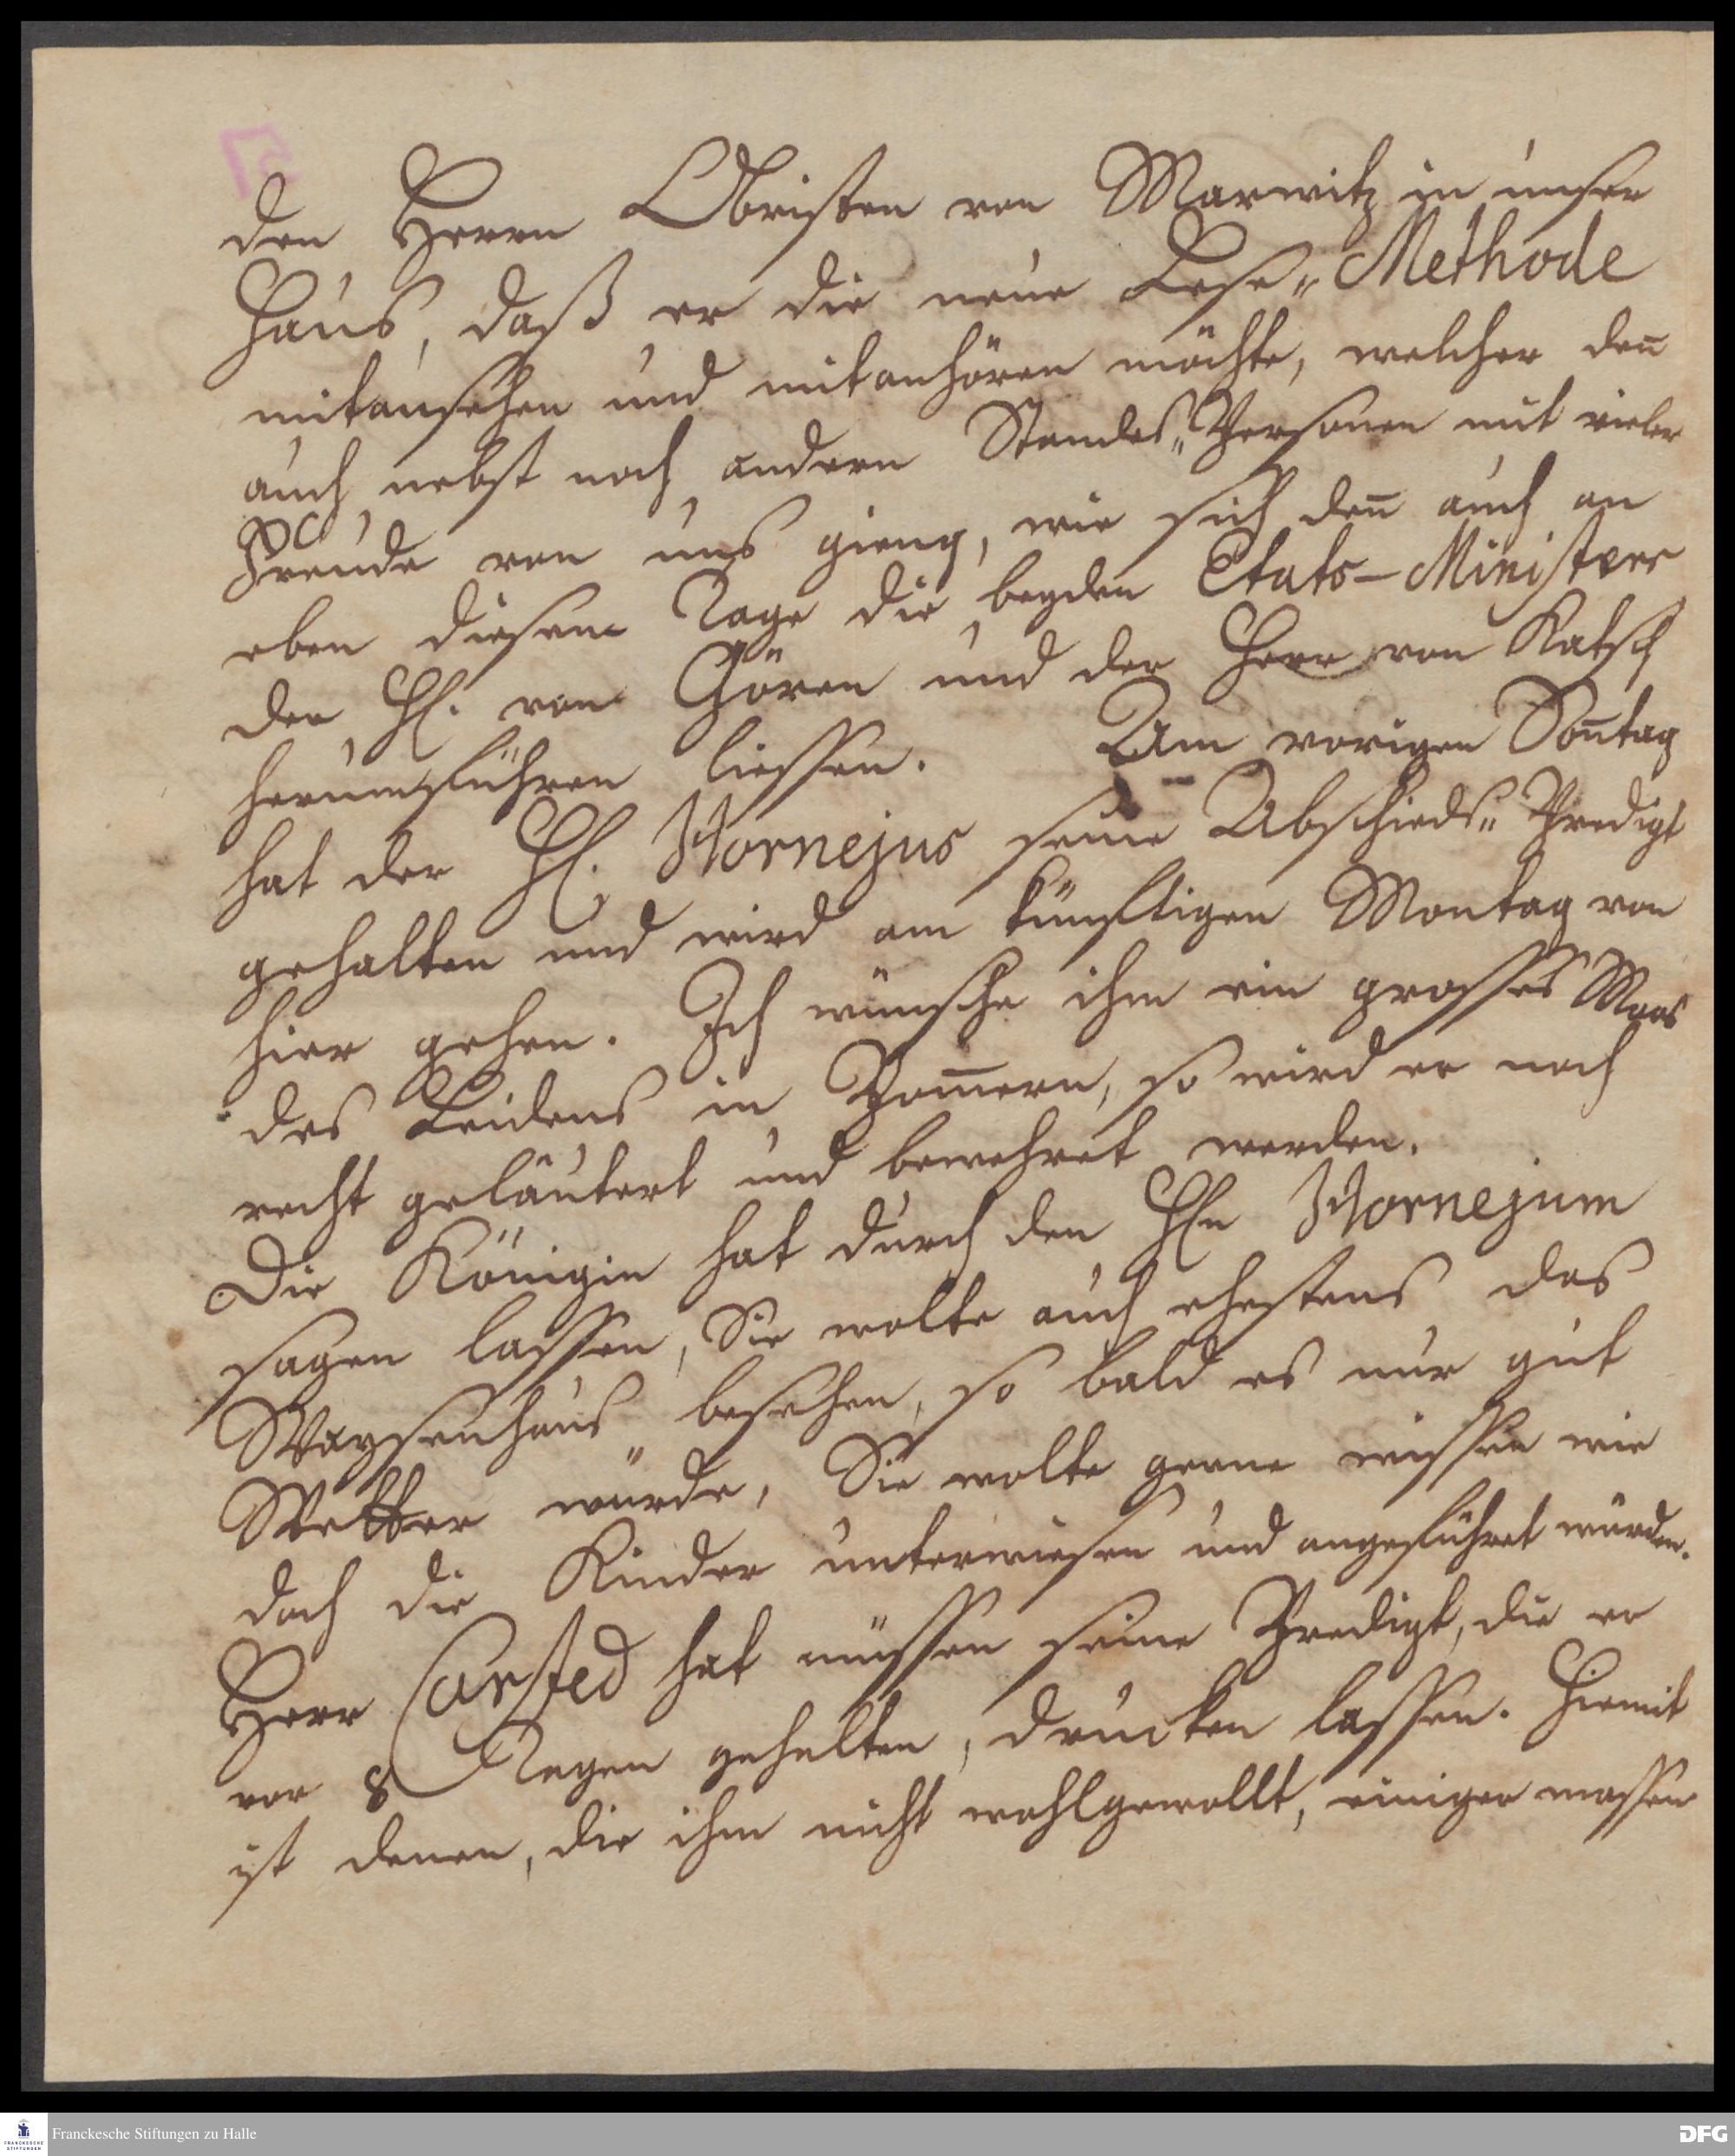 den Herrn Obristen von Marwitz in unser
Haus, daß er die neue Lese-Methode
mitansehen und mitanhören möchte, welcher deñ
auch nebst noch andern Standes-Personen mit vieler
Freude von uns gieng, wie sich deñ auch an
eben diesem Tage die beyden Etats-Ministers
der H. von Gören und der Herr von Katsch
herumführen liessen. Am vorigen Soñtag
hat der H. Hornejus seine Abschieds-Predigt
gehalten und wird am künftigen Montag von
hier gehen. Ich wünsche ihm ein grosses Maas
des Leidens in Pom̃ern, so wird er noch
recht geläutert und bewehret werden.
Die Königin hat durch den Hn Hornejum
sagen lassen, Sie wolte auch ehestens das
Waysenhaus besehen, so bald es nur gut
Wetter würde, Sie wolte gerne wissen wie
doch die Kinder unterwiesen und angeführet würden.
Herr Carsted hat müssen seine Predigt, die er
vor 8 Tagen gehalten, drucken lassen. Hiemit
ist denen, die ihm nicht wohlgewollt, einiger massen
Franckesche Stiftungen zu Halle
FRANCKESCHE
STIFTUNGEN
DFG